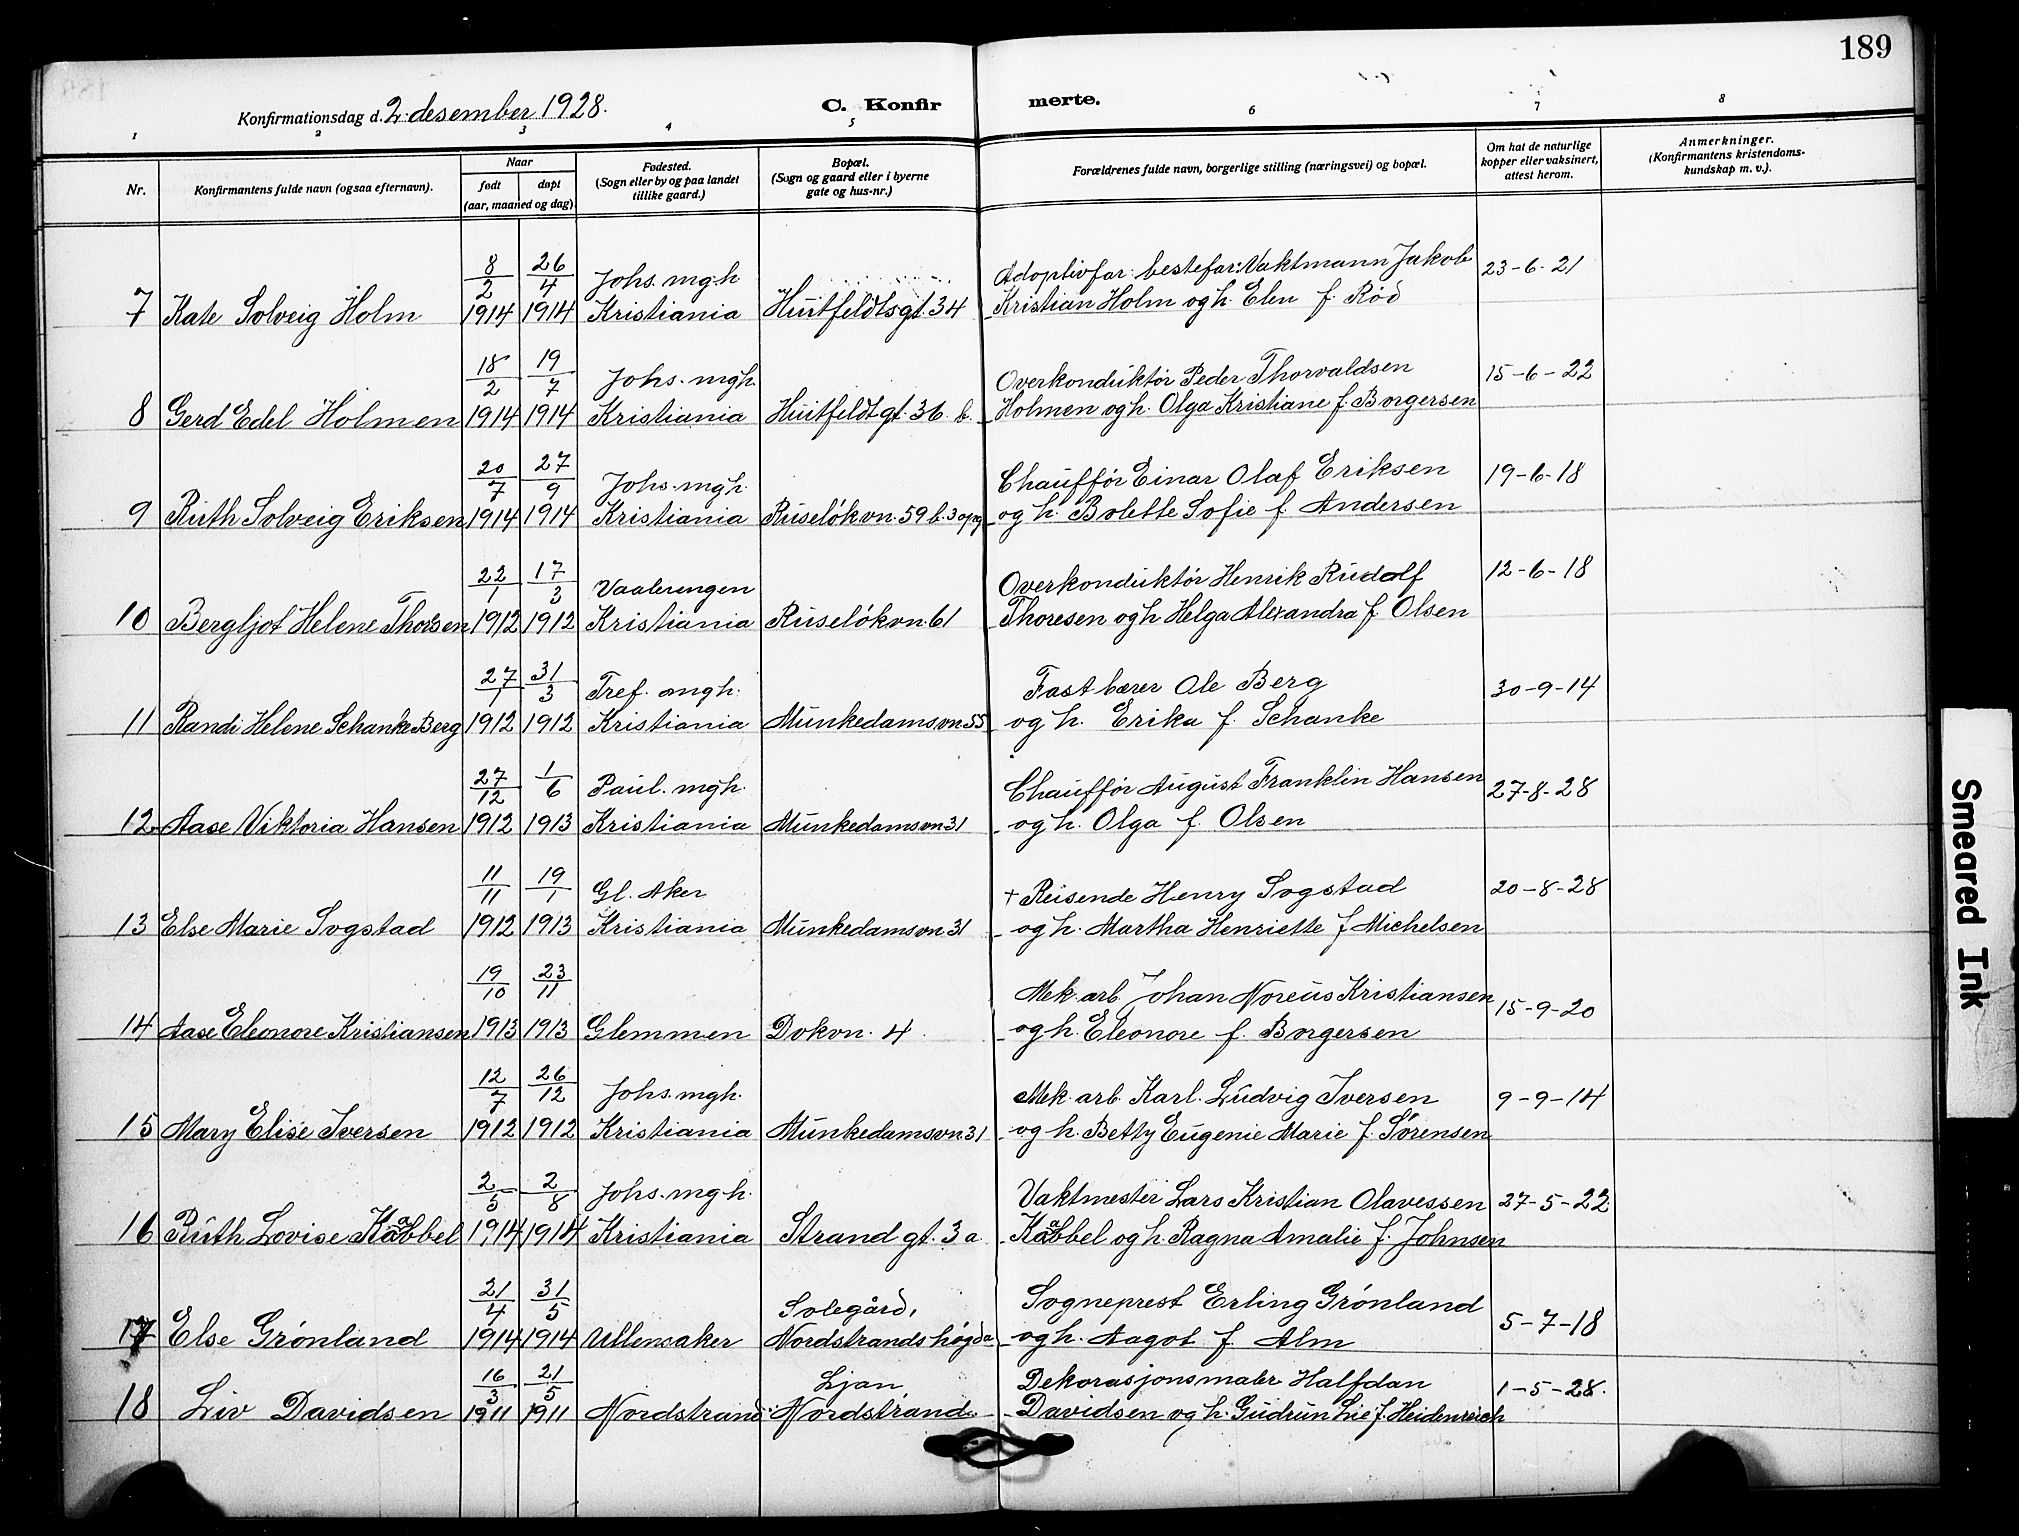 189
Konfirmationsdag d. 2. desember 1928.
C. Konfir
merte.
1 2 3 4 5 6 7 8
Nr.
Konfirmantens fulde navn (ogsaa efternavn).
Naar
født døpt
(aar, maaned og dag)
Fødested.
(Sogn eller by og paa landet
tillike gaard.)
Bopæl.
(Sogn og gaard eller i byerne
gate og hus-nr.)
Forældrenes fulde navn, borgerlige stilling (næringsvei) og bopæl.
Om hat de naturlige
kopper eller vaksinert,
attest herom.
Anmerkninger.
(Konfirmantens kristendoms-
kundskap m. v.).
8/2 26/4 Johs. mgh Adoptivfar: bestefar: Vaktmann Jakob 23-6-21
7 Kate Solveig Holm 1914 1914 Kristiania Huitfeldtsgt. 34 Kristian Holm og h. Elen f. Rød
18/2 19/7 Johs. mgh. Overkonduktør Peder Thorvaldsen 15-6-22
8 Gerd Edel Holmen 1914 1914 Kristiania Huitfeldtgt. 36 b. Holmen og h. Olga Kristiane f. Borgersen
20/7 27/9 Johs. mgh. Chauffør Einar Olaf Eriksen 19-6-18
9 Ruth Solveig Eriksen 1914 1914 Kristiania Ruseløkvn. 59 b. 3 opg og h. Bolette Sofie f. Andersen
22/1 17/3 Vaalerengen Overkonduktør Henrik Rudolf 12-6-18
10 Bergljot Helene Thorsen 1912 1912 Kristiania Ruseløkvn. 61 Thoresen og h Helga Alexandra f. Olsen
27/1 31/3 Tref. mgh. Fast bærer Ole Berg 30-9-14
11 Randi Helene Schanke Berg 1912 1912 Kristiania Munkedamsvn 55 og h. Erika f. Schanke
27/12 1/6 Paul. mgh. Chauffør August Franklin Hansen 27-8-28
12 Aase Viktoria Hansen 1912 1913 Kristiania Munkedamsvn 31 og h. Olga f. Olsen
11/11 19/1 Gl. Aker + Reisende Henry Sogstad 20-8-28
13 Else Marie Sogstad 1912 1913 Kristiania Munkedamsvn 31 og h. Martha Henriette f Michelsen
19/10 23/11 Mek. arb. Johan Noreus Kristiansen 15-9-20
14 Aase Eleonore Kristiansen 1913 1913 Glemmen Dokvn. 4 og h. Eleonore f. Borgersen
12/7 26/12 Johs. mgh. Mek. arb. Karl. Ludvig Iversen 9-9-14
15 Mary Elise Iversen 1912 1912 Kristiania Munkedamsvn 31 og h. Betty Eugenie Marie f. Sørensen
2/5 2/8 Johs. mgh. Vaktmester Lars Kristian Olavessen 27-5-22
16 Ruth Lovise Kabbel 1914 1914 Kristiania Strand gt. 3 a. Kabbel og h. Ragna Amalie f. Johnsen
21/4 31/5 Solegård, Sogneprest Erling Grønland 5-7-18
17 Else Grønland 1914 1914 Ullensaker Nordstrandshøgda og h. Aagot f. Alm
16/3 21/5 Ljan, Dekorasjonsmaler Halfdan 1-5-28.
18 Liv Davidsen 1911 1911 Nordstrand Nordstrand Davidsen og h. Gudrun Lie f. Heidenreich
Smeared Ink